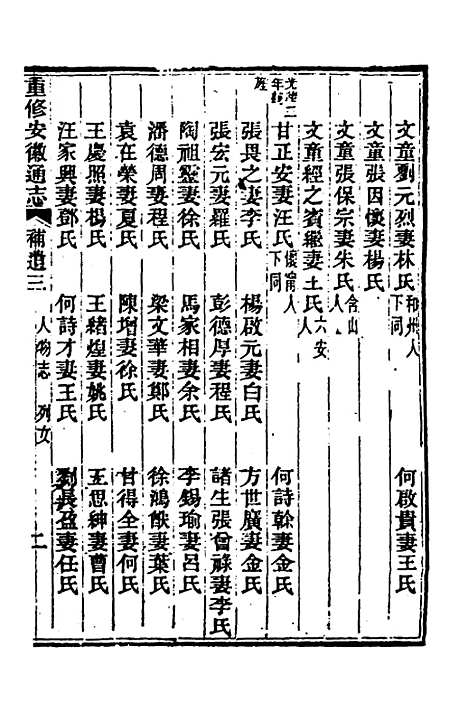 文童劉元烈妻林氏和州人下同 何啟貴妻王氏
文童張因懷妻楊氏
文童張保宗妻朱氏含山人
文童經之賓繼妻王氏六安人
甘正安妻汪氏懷甯人下同 何詩斡妻金氏
張畏之妻李氏 楊啟元妻白氏 方世廣妻金氏
張宏元妻羅氏 彭德厚妻程氏 諸生張曾祿妻李氏
陶祖鑒妻徐氏 馬家相妻余氏 李錫瑜妻呂氏
潘德周妻程氏 梁文華妻鄭氏 徐鴻猷妻葉氏
袁在榮妻夏氏 陳增妻徐氏 甘得全妻何氏
王慶照妻楊氏 王緒煌妻姚氏 王思紳妻曹氏
汪家興妻鄧氏 何詩才妻王氏 劉長盈妻任氏
重修安徽通志 補遺三 人物志 列女 二